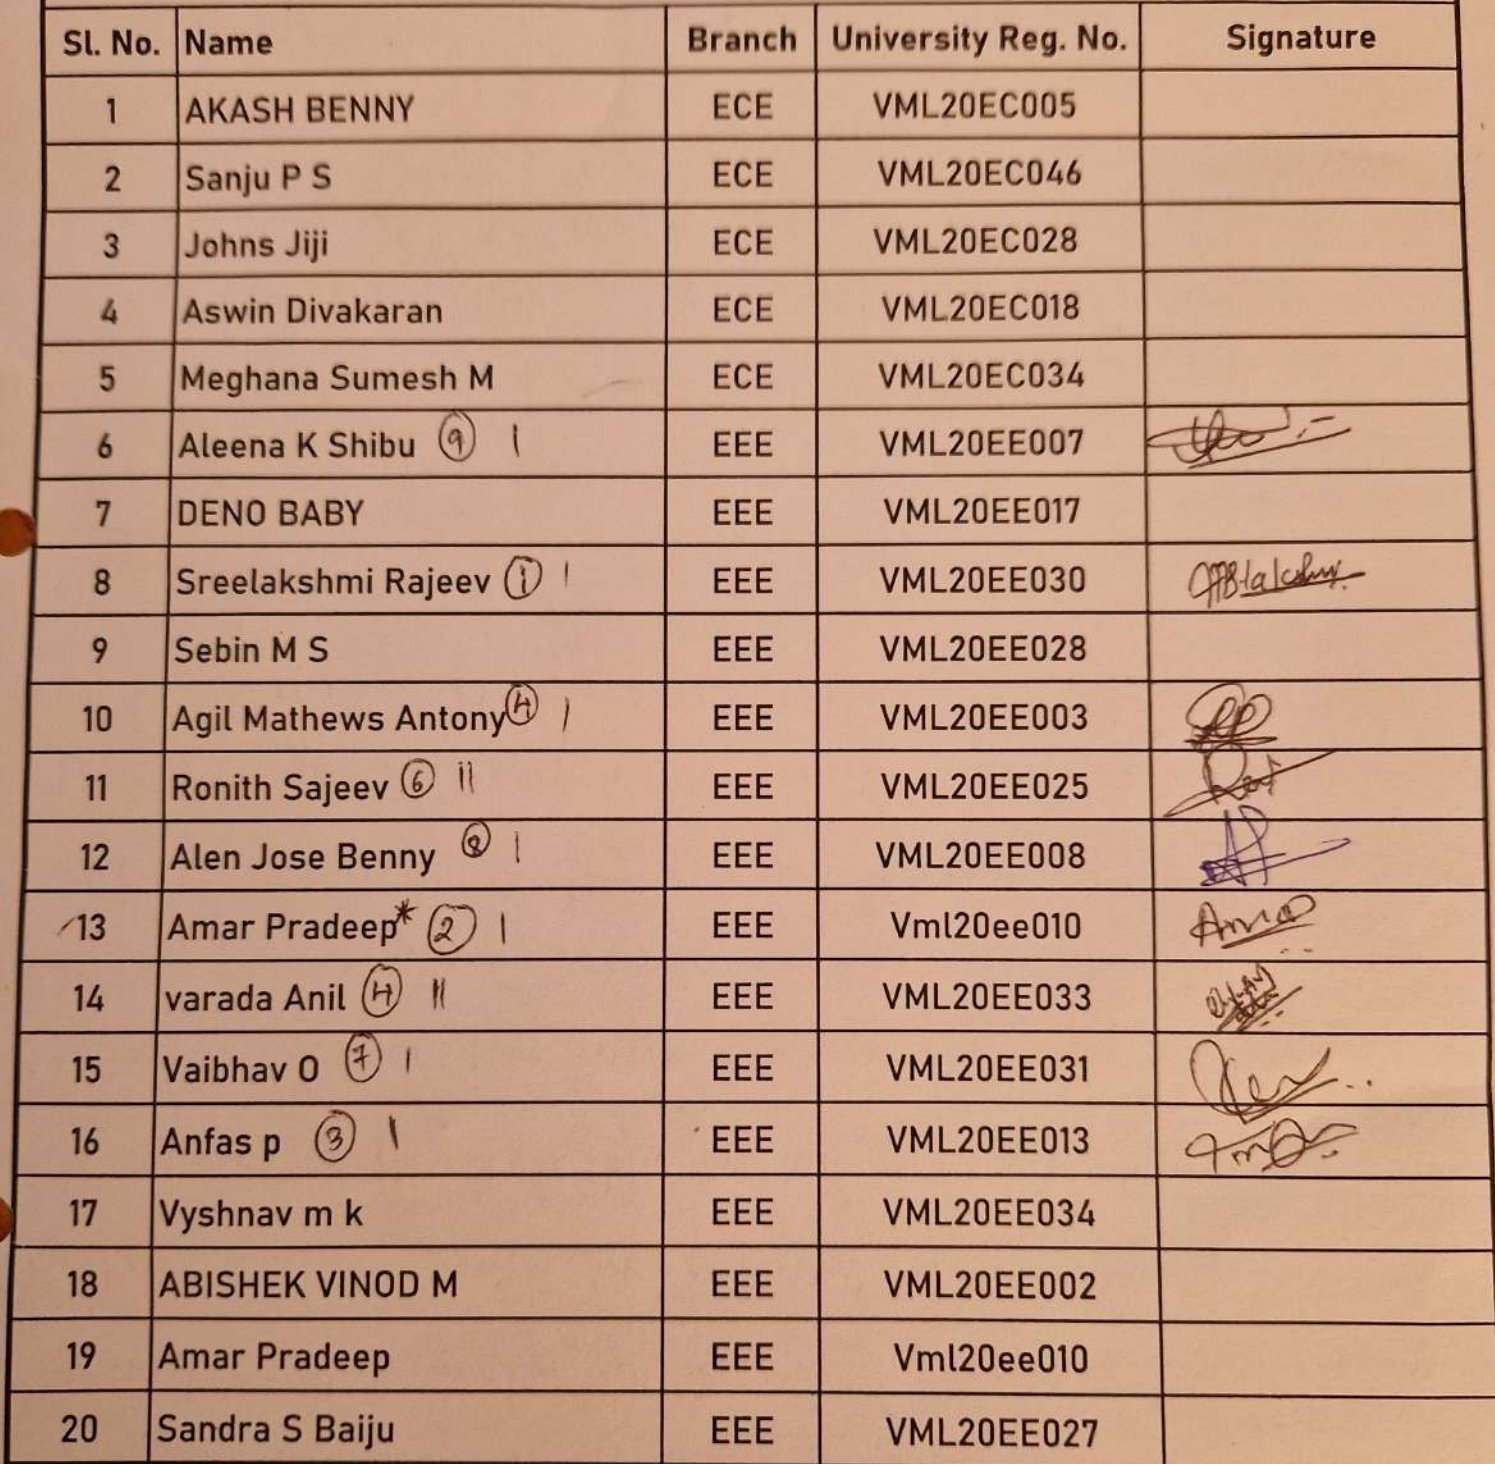 Sl. No. Name Branch University Reg. No. Signature
1 AKASH BENNY ECE VML20EC005
2 Sanju P S ECE VML20EC046
3 Johns Jiji ECE VML20EC028
4 Aswin Divakaran ECE VML20EC018
5 Meghana Sumesh M ECE VML20EC034
6 Aleena K Shibu 9 | EEE VML20EE007
7 DENO BABY EEE VML20EE017
8 Sreelakshmi Rajeev 1 | EEE VML20EE030
9 Sebin M S EEE VML20EE028
10 Agil Mathews Antony 4 | EEE VML20EE003
11 Ronith Sajeev 6 || EEE VML20EE025
12 Alen Jose Benny 8 | EEE VML20EE008
13 Amar Pradeep* 2 | EEE Vml20ee010 Amar
14 varada Anil 4 || EEE VML20EE033
15 Vaibhav O 7 | EEE VML20EE031
16 Anfas p 3 | EEE VML20EE013
17 Vyshnav m k EEE VML20EE034
18 ABISHEK VINOD M EEE VML20EE002
19 Amar Pradeep EEE Vml20ee010
20 Sandra S Baiju EEE VML20EE027